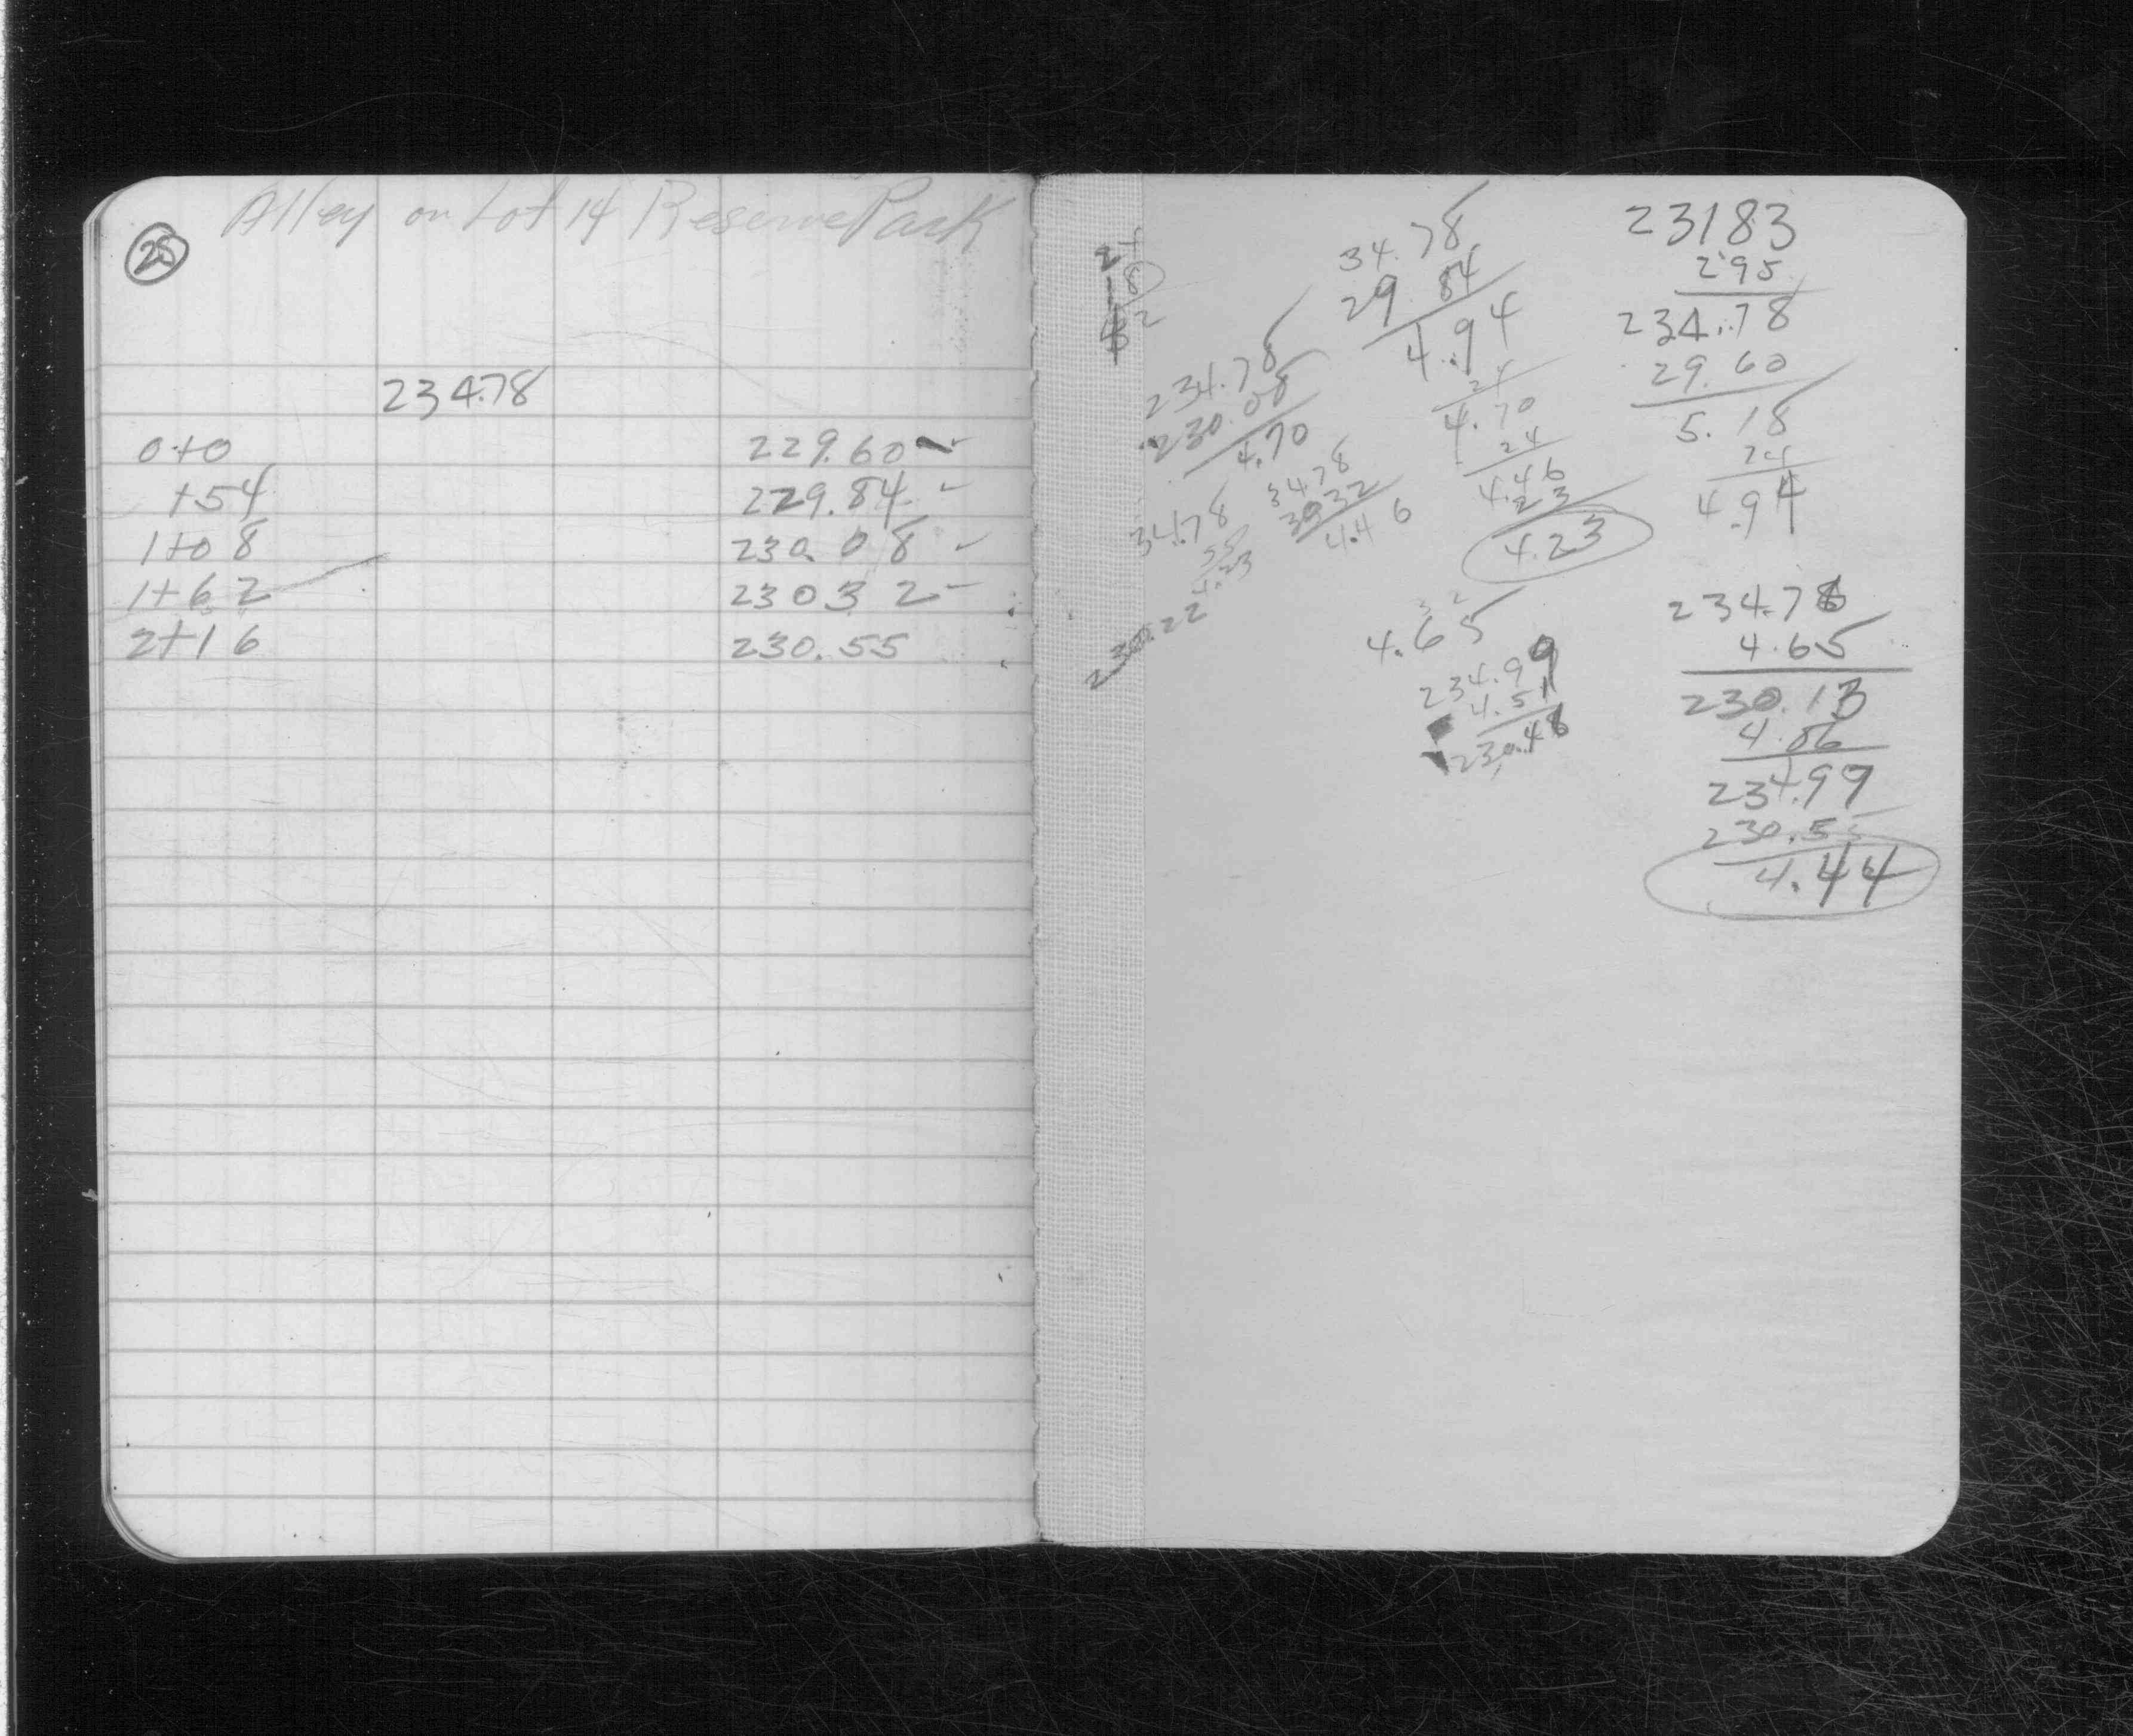 Alley on Lot 14 Reserve Park
25
234.78
0+0 229.60
+54 229.84
1+08 230.08
1+62 230 3 2
2+16 230.55
34.78
29 84
4.94
24
4.70
24
4.46
23
4.23
234.78
230.08
4.70
3478
3032
4.46
34.78
55
4.23
230.22
32
4.65
234.99
4.51
230.48
23183
295
234.78
29.60
5.18
24
4.94
234.78
4.65
230.13
4.86
234.99
230.55
4.44